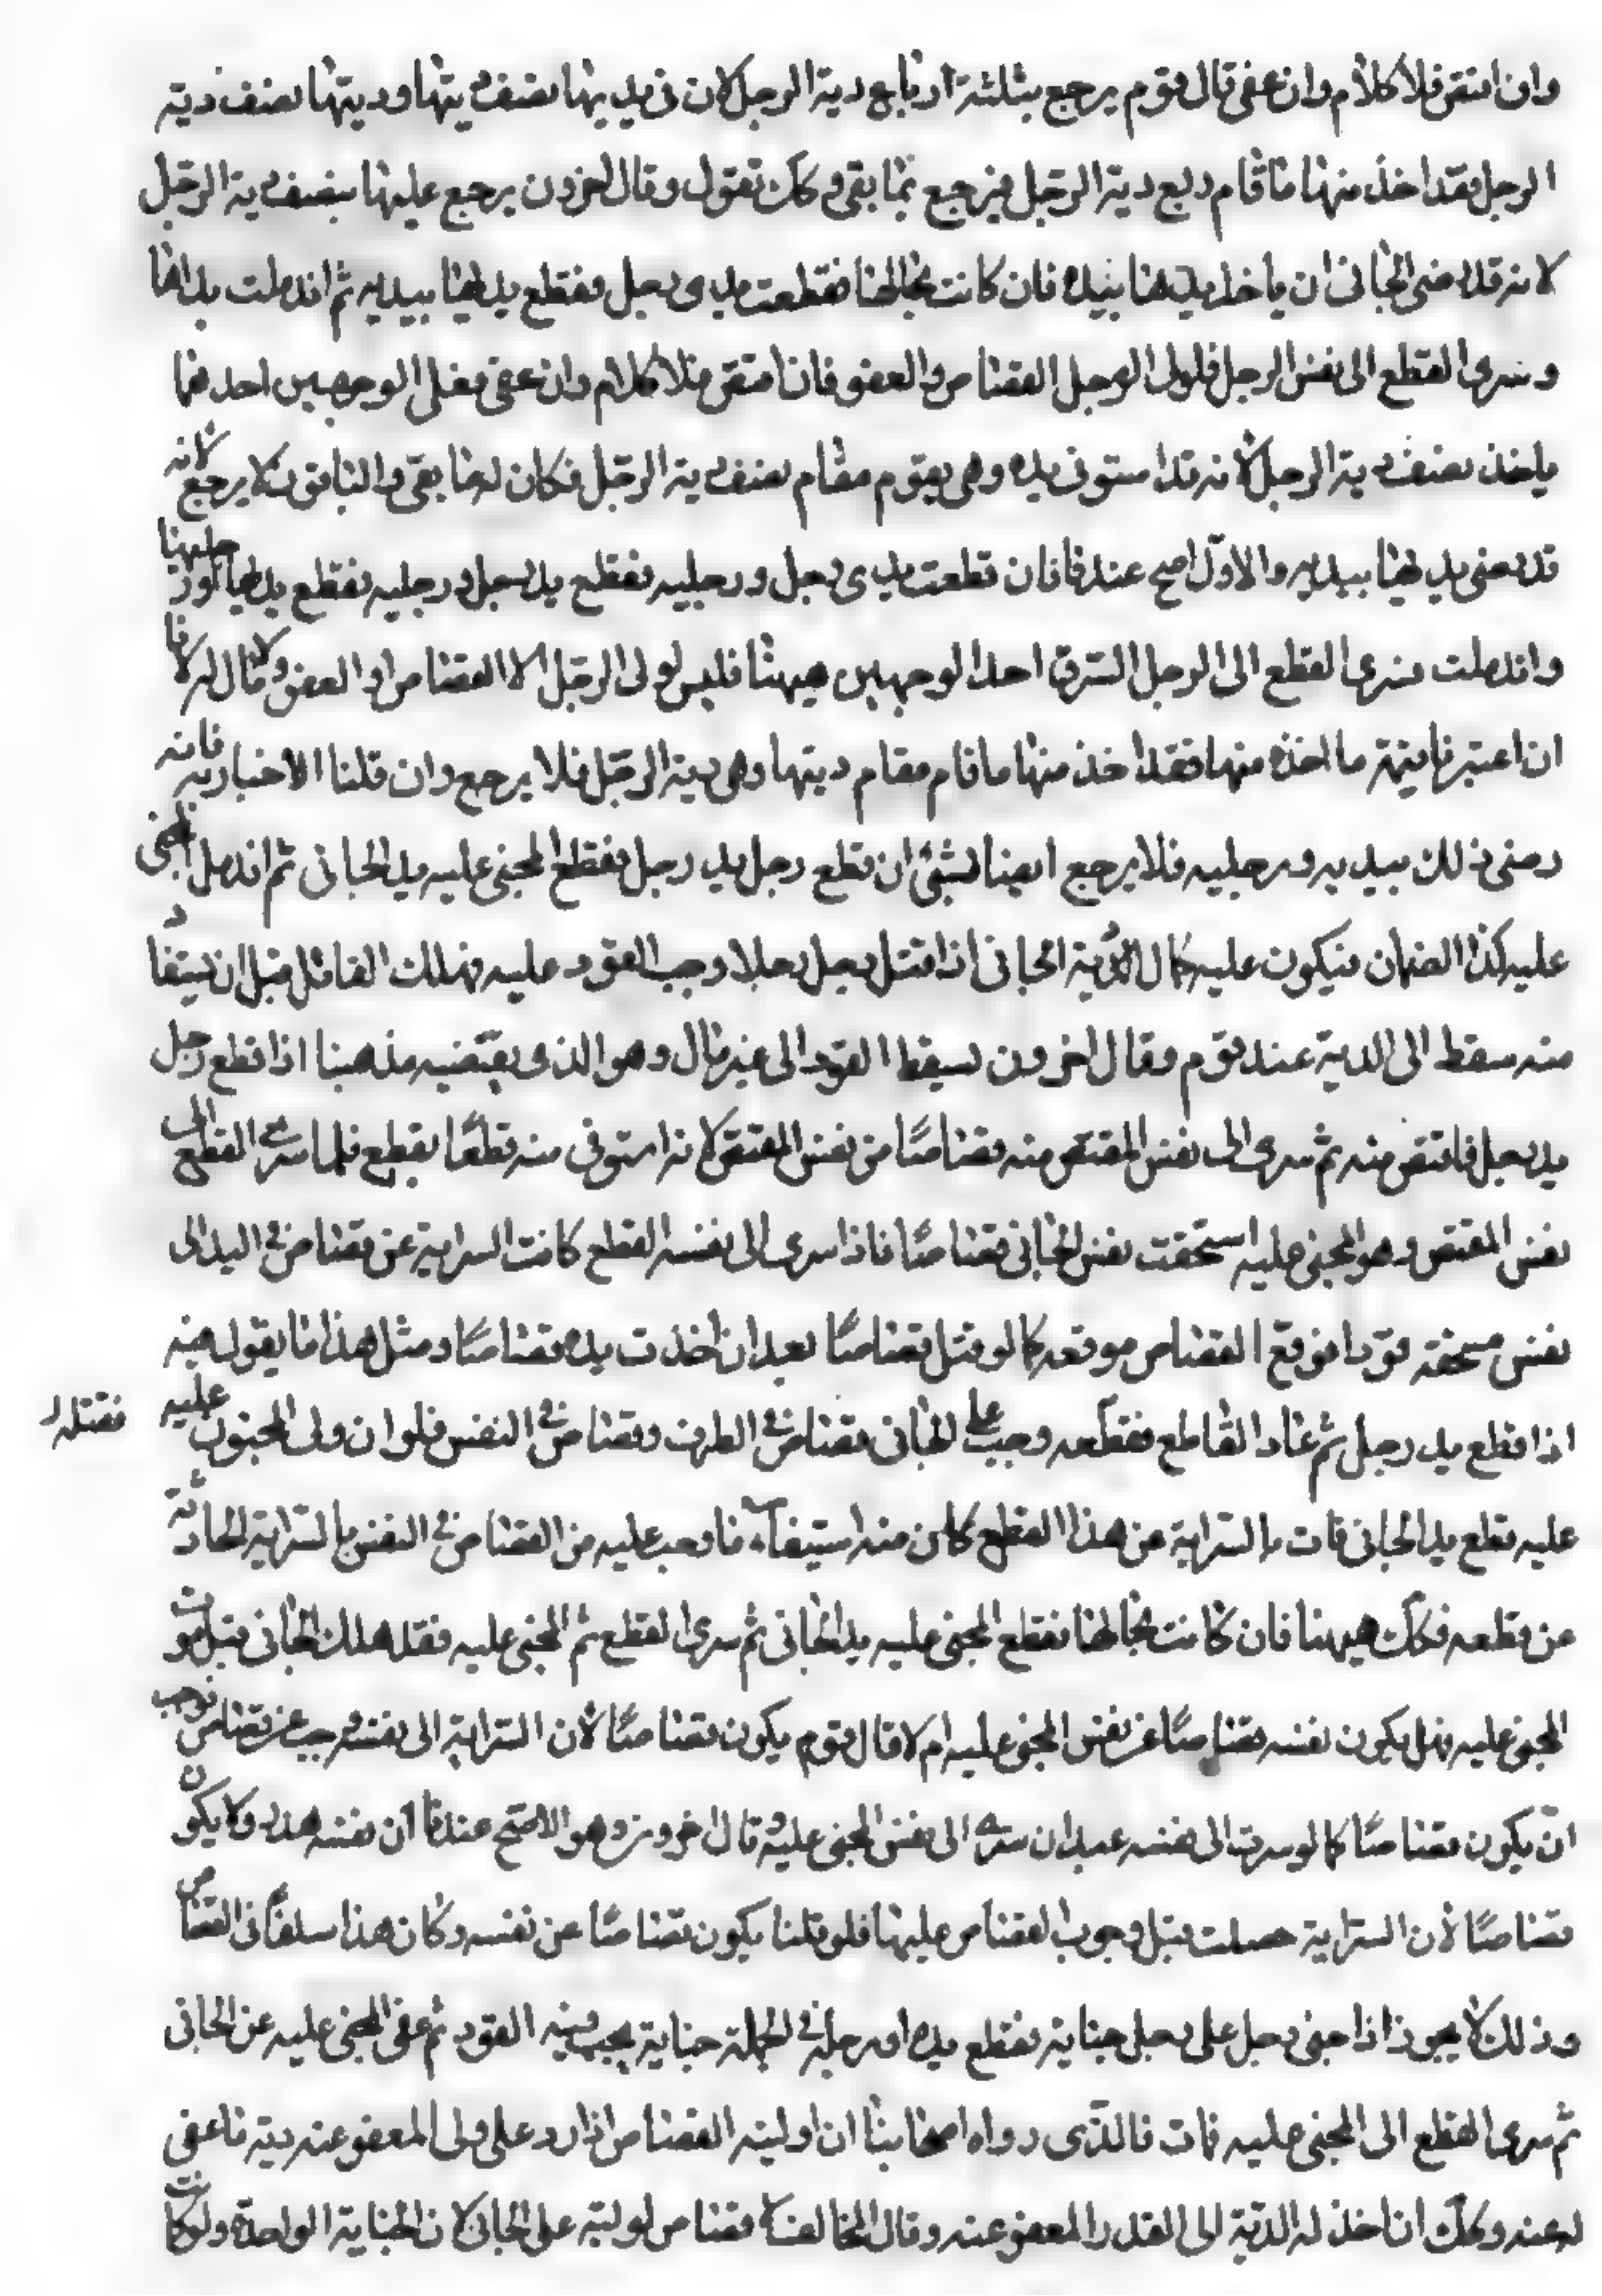 وان اقتص فلا كلام وان عفى قال قوم يرجع بثلثة ارباع دية الرجل لان في يديها نصف ديتها وديتها نصف دية
الرجل فقد اخذ منها ما قام ربع دية الرجل فيرجع بما بقى وكك نقول وقال اخرون يرجع عليها بنصف دية الرجل
لانه قد رضى الجاني ان ياخذ يدها بيده فان كانت بحالها فقطعت يدى رجل فقطع يديها بيديه ثم اندملت يداها
وسرى القطع الى نفس الرجل فلولى الرجل القصاص والعفو فان اقتص فلا كلام وان عفى فعلى الوجهين احدهما
ياخذ نصف دية الرجل لانه قد استوفى يده وهي يقوم مقام نصف دية الرجل فكان له ما بقى والثانى لا يرجع لانه
قد رضى يديها بيديه والاول اصح عندنا فان قطعت يدى رجل ورجليه فقطع يد رجل ورجليه فقطع يديها ورجليها
واندملت وسرى القطع الى الرجل احد الوجهين هيهنا فليس لولى الرجل الا القصاص او العفو ولا مال له لانا
ان اعتبرنا قيمة ما اخذه منها فقد اخذ منها ما قام مقام ديتها وهى دية الرجل فلا يرجع وان قلنا الاخبار به فانه
رضى ذلك بيديه ورجليه فلا يرجع ايضا بشئ ان قطع رجل يد رجل فقطع المجنى عليه يد الجانى ثم اندمل المجنى
عليه كذا الضمان فيكون عليه كمال الدية الجانى اذا قتل رجل رجلا وجب القود عليه فهلك القاتل قبل ان يستفاد
منه سقط الى الدية عند قوم وقال اخرون يسقط القود الى غير مال وهو الذى يقتضيه مذهبنا اذا قطع رجل
يد رجل فاقتص منه ثم سرى الى نفس المقتص منه قصاصًا من نفس المقتص لانه استوفى منه قطعًا بقطع فلما سرى القطع الى
نفس المقتص وهو المجنى عليه استحقت نفس الجانى قصاصًا فاذا سرى الى نفسه القطع كانت السراية عن قصاص في اليد الى
نفس مستحقة قودا فوقع القصاص موقعه كما لو قتل قصاصًا بعد ان اخذت يده قصاصًا ومثل هذا ما يقول فيه
اذا قطع يد رجل ثم عاد القاطع فقطعه وجب على الجانى قصاص في الطرف وقصاص في النفس فلو ان ولى المجنى عليه فقتله
عليه قطع يد الجانى فات بالسراية عن هذا القطع كان منه استيفاء ما وجب عليه من القصاص في النفس بالسراية الحادثة
عن قطعه فكك هيهنا فان كانت بحالها فقطع المجنى عليه يد الجانى ثم سرى القطع ثم المجنى عليه فقد هلك الجانى قبل موت
المجنى عليه فهل يكون نفسه قصاصًا عن نفس المجنى عليه ام لا قال قوم يكون قصاصًا لان السراية الى نفسه وجب عن قصاص فوجب
ان يكون قصاصًا كما لو سرت الى نفسه بعد ان سرى الى نفس المجنى عليه وقال اخرون وهو الاصح عندنا ان نفسه هدر ولا يكون
قصاصًا لان السراية حصلت قبل وجوب القصاص عليها فلو قلنا يكون قصاصًا عن نفسه وكان هذا سلفًا في القصاص
وذلك لا يجوز اذا جنى رجل على رجل جناية فقطع يده او رجله في الجملة جناية يجب فيه القود ثم عفى المجنى عليه عن الجانى
ثم سرى القطع الى المجنى عليه فات فالذى رواه اصحابنا ان اوليته القصاص اذا رد على ولى المعفو عنه دية ما عفى
له عنه وكك ان اخذ له الدية الى القدر المعفو عنه وقال المخالف لا قصاص لوليته على الجانى لان الجناية الواحدة ولو كانت